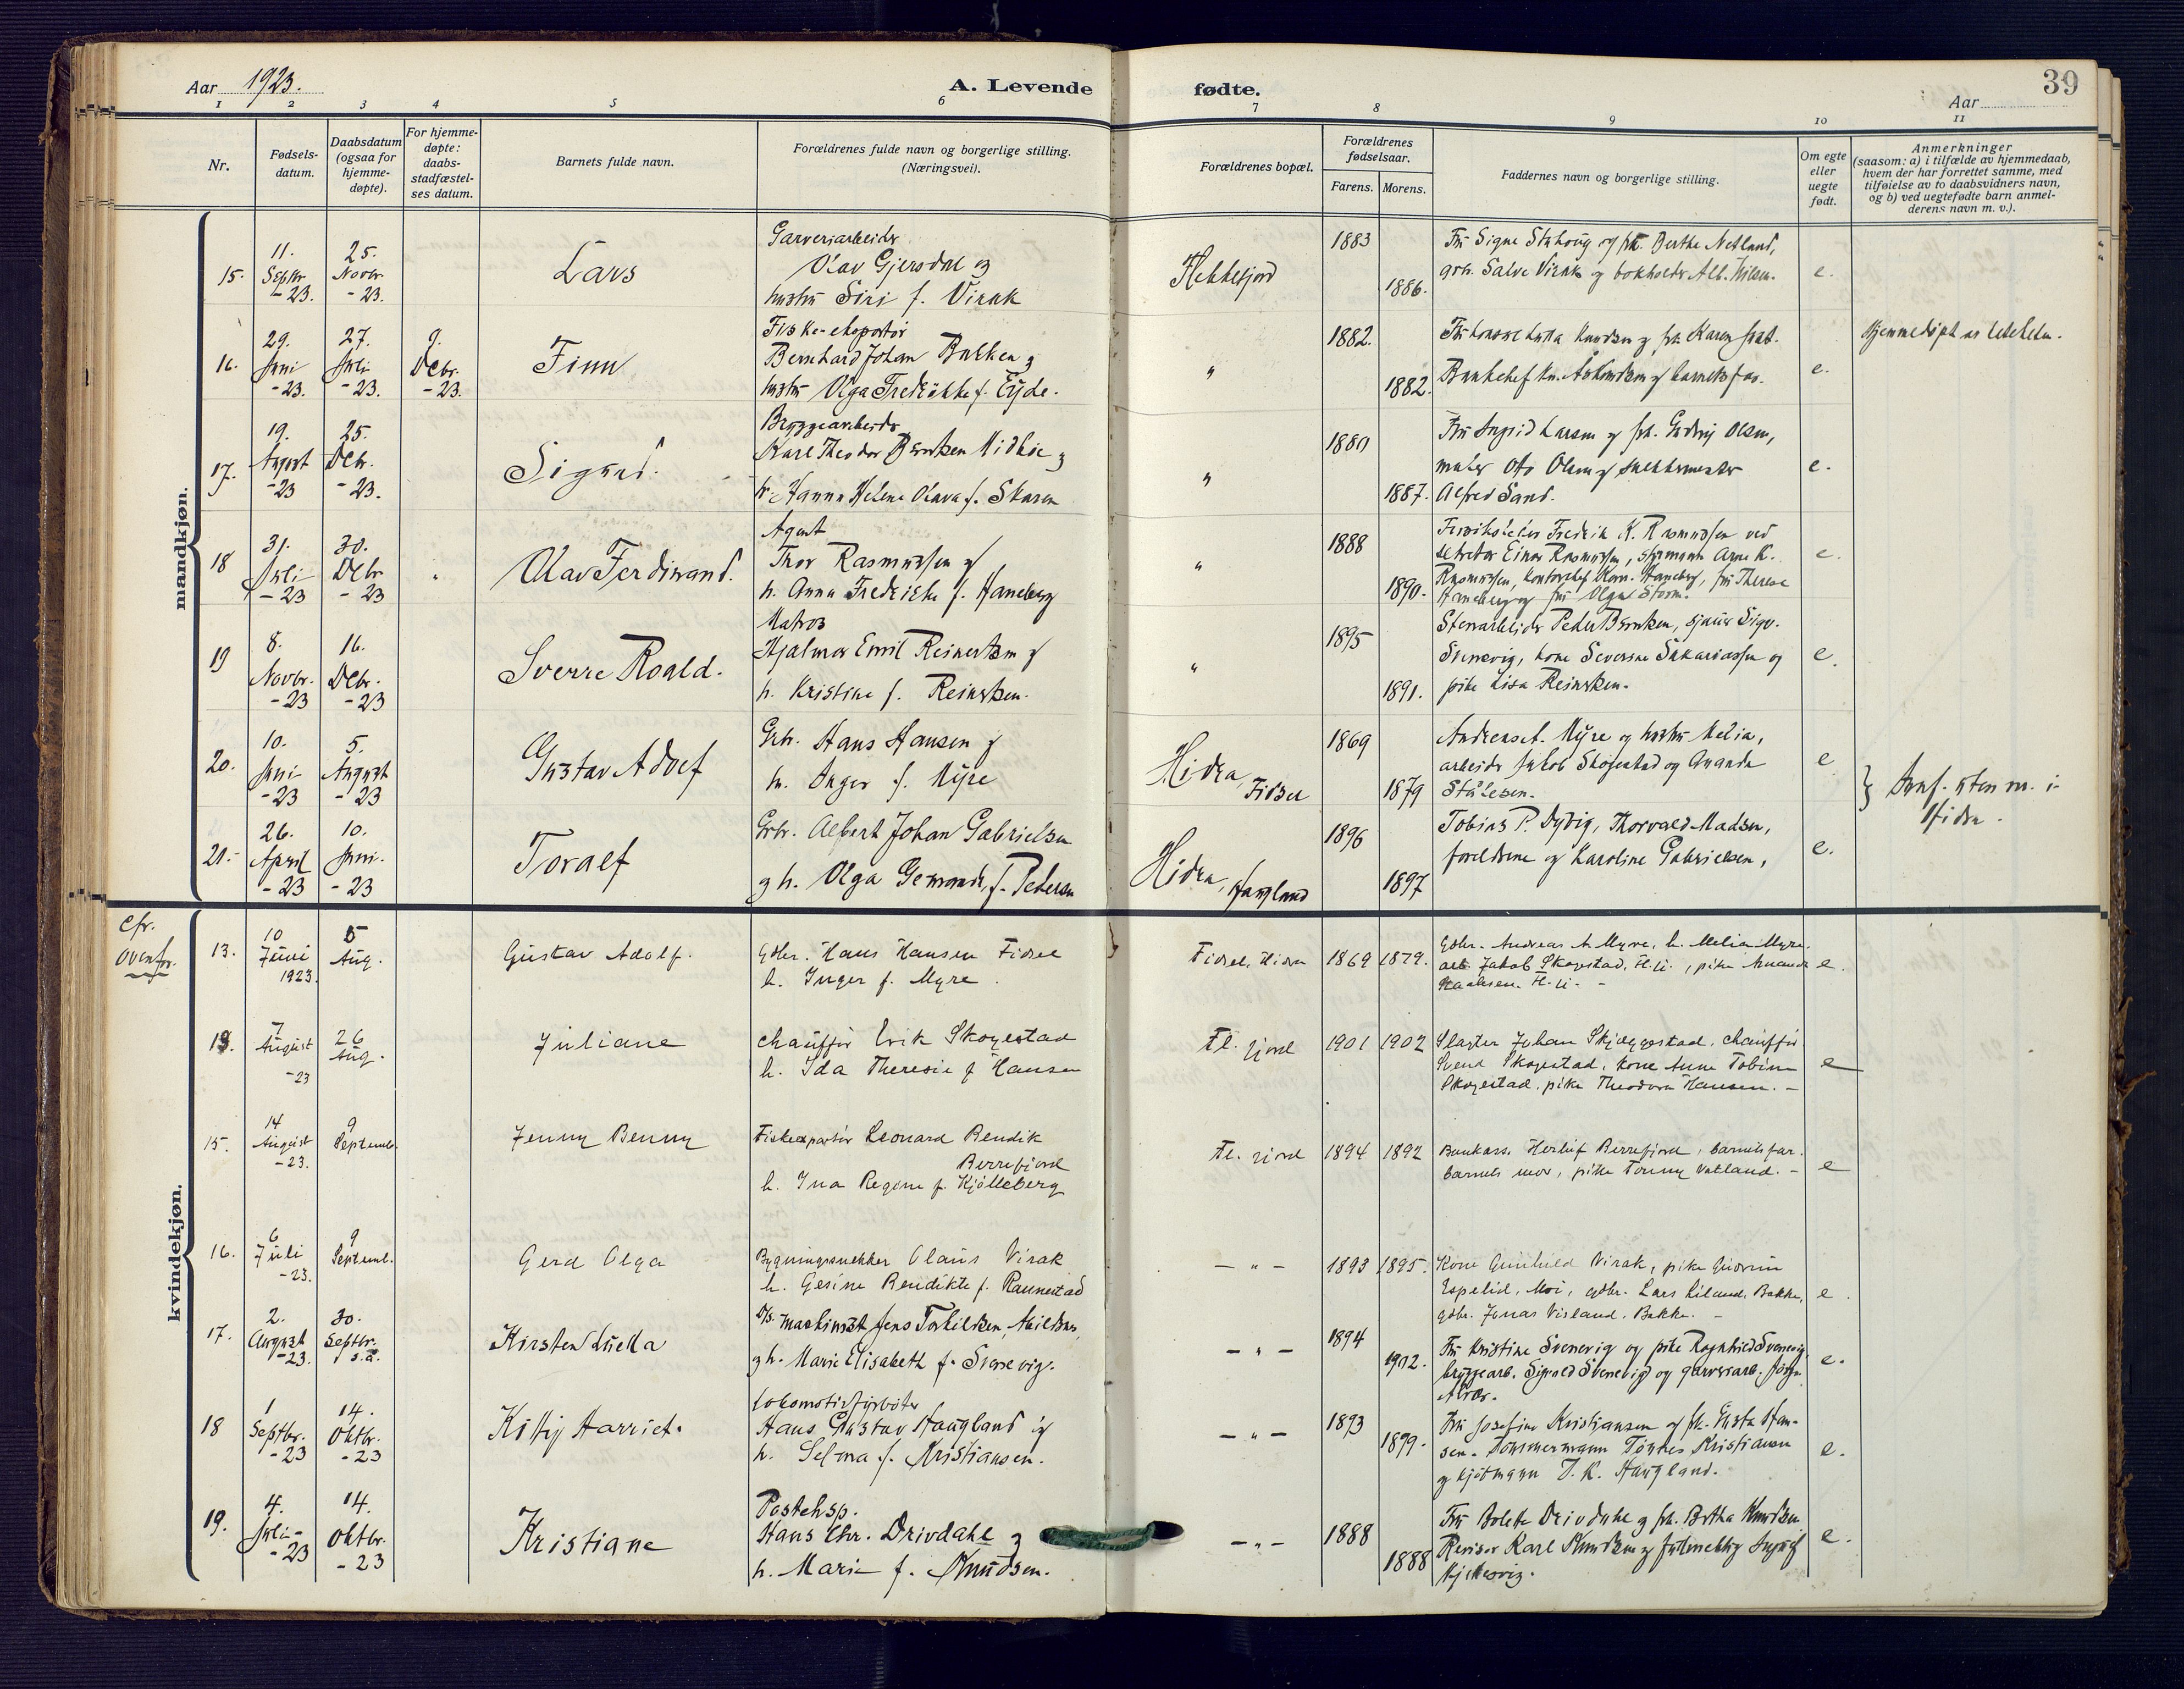 Aar 1923.
A. Levende
fødte.
39
Aar
1 2 3 4 5 6 7 8 9 10 11
Nr.
Fødsels-
datum.
Daabsdatum
(ogsaa for
hjemme-
døpte).
For hjemme-
døpte:
daabs-
stadfæstel-
ses datum.
Barnets fulde navn.
Forældrenes fulde navn og borgerlige stilling.
(Næringsvei).
Forældrenes bopæl.
Forældrenes
fødselsaar.
Farens. Morens.
Faddernes navn og borgerlige stilling.
Om egte
eller
uegte
født.
Anmerkninger
(saasom: a) i tilfælde av hjemmedaab,
hvem der har forrettet samme, med
tilføielse av to daabsvidners navn,
og b) ved uegtefødte barn anmel-
derens navn m. v.).
mandkjøn.
15.
11.
Septbr.
-23.
25.
Novbr.
-23.
Lars
Garveriarbeider
Olav Gjersdal og
hustru Siri f. Virak
Hekkefjord
1883
1886.
Fru Signe og frk. Berthe Netland,
grb. Salve Virak og bokholder Alb. Nilsen.
e.
16.
29.
Juni
-23.
27.
Juli
-23.
9.
Debr.
-23.
Finn
Fiske-eksportør
Bernhard Johan Bakken og
hustru Olga Fredrikke f. Eyde.
"
1882.
1882.
Knudsen og frk. Karen
og barnets far.
e.
Hjemmedøpt av
17.
19.
August
-23
25.
Debr.
-23.
Sigurd.
Bryggearbeider
Karl Theodor Berntsen Midbøe og
h. Hanna Helene Olava f. Skaren
"
1880
1887.
Fru Ingrid Larsen og frk. Gudrun Olsen,
maler Otto Olsen og snekkermester
Alfred Sand.
e.
18
31.
Juli
-23
30.
Debr
-23
"
Olav Ferdinand.
Agent
Thor Rasmussen og
h. Anna Fredrikke f. Haneberg
"
1888
1890.
Fredrik K. Rasmussen ved
Einar Rasmussen, styrmann Arne K.
Rasmussen, kontorchef Haneberg, fru Therese
Haneberg og fru Olga Storm.
e.
19
8.
Novbr.
-23
16.
Debr.
-23
Sverre Roald.
Matros
Hjalmar Emil Reinertsen og
h. Kristine f. Reinertsen.
"
1895
1891.
Stenarbeider Peder Berntsen, sjauer Sigv.
Svenevig, kone Severine Sakariassen og
pike Lisa Reinertsen.
e.
20.
10.
Juni
-23
5.
August
-23
Gustav Adolf
Grbr. Hans Hansen og
h. Inger f. Myre
Hidra, Fidsel
1869
1879
Andreas A. Myre og hustru Melia,
arbeider Jakob Skogestad og Amanda
Stålesen.
e
} i
Hidra.
21.
26.
April
-23
10.
Juni.
-23
Toralf
Grbr. Albert Johan Gabrielsen
og h. Olga f. Pedersen
Hidra, Haugland
1896
1897
Tobias P. Dydvig, Thorvald Madsen,
foreldrene og Karoline Gabrielsen,
e.
kvindekjøn.
cfr.
ovenfor.
13.
10
Juni
1923.
5
Aug.
Gustav Adolf.
Gdbr. Hans Hansen Fidsel
h. Inger f. Myre.
Fidsel, Hidra
1869 1879.
Gdbr. Andreas A. Myre, h. Melia Myre.
arb. Jakob Skogestad, , pike Amanda
Staalesen.
e.
7
August
-23
26
Aug.
Juliane
chauffør Erik Skogestad
h. Ida Theresie f Hansen
Fl. fjord
1901 1902
Slagter Johan Skjeggestad, chauffør
Svend Skogestad, kone Anne Tobine
Skogestad, pike Theodora Hansen. -
e
15.
14
August
-23.
9
Septemb.
Jenny Benny
Fiskexportør Leonard Bendik
Berrefjord
h. Ina Regine f. Kjølleberg
Fl. fjord
1894 1892
Bankass. Herluf Berrefjord, barnets far.
barnets mor, pike Tonny Vatland. -
e
16.
6
Juli
-23.
9
Septemb.
Gerd Olga
Bygningssnekker Olaus Virak
h. Gesine Bendikte f. Raunestad
- " -
1893 1895.
Kone Gunhild Virak, pike Gudrun
Espelid, Moi, gdbr. Lars Liland, Bakke,
gdbr. Jonas Visland, Bakke. -
e.
17.
2.
August
-23.
30.
Septbr.
s.a.
Kirsten Luella
D/s. maskinist Jens Torkildsen,
og h. Marie Elisabeth f. Svenevig.
- " -
1894
1902.
Fru Kristine Svenevig og pike Ragnhild Svenevig,
bryggearb. Sigvald Svenevig og garveriarb. Jørgen
e.
18
1
Septbr.
-23
14.
Oktbr.
-23
Kitty Harriet.
Lokomotivfyrbøter
Hans Gustav Haugland og
h. Selma f. Kristiansen.
- " -
1893
1899.
Fru Josefine Kristiansen og frk. Gusta Han-
sen. Tømmermann Tønnes Kristiansen
og kjøbmann J. K. Haugland.
e.
19.
4.
Juli-
-23
14.
Oktbr.
-23
Kristiane
Posteksp.
Hans Chr. Drivdahl og
h. Marie f. Knudsen.
- " -
1888
1888
Fru Bolette Drivdahl og frk. Bertha Knudsen
Revisor Karl Knudsen og
e.